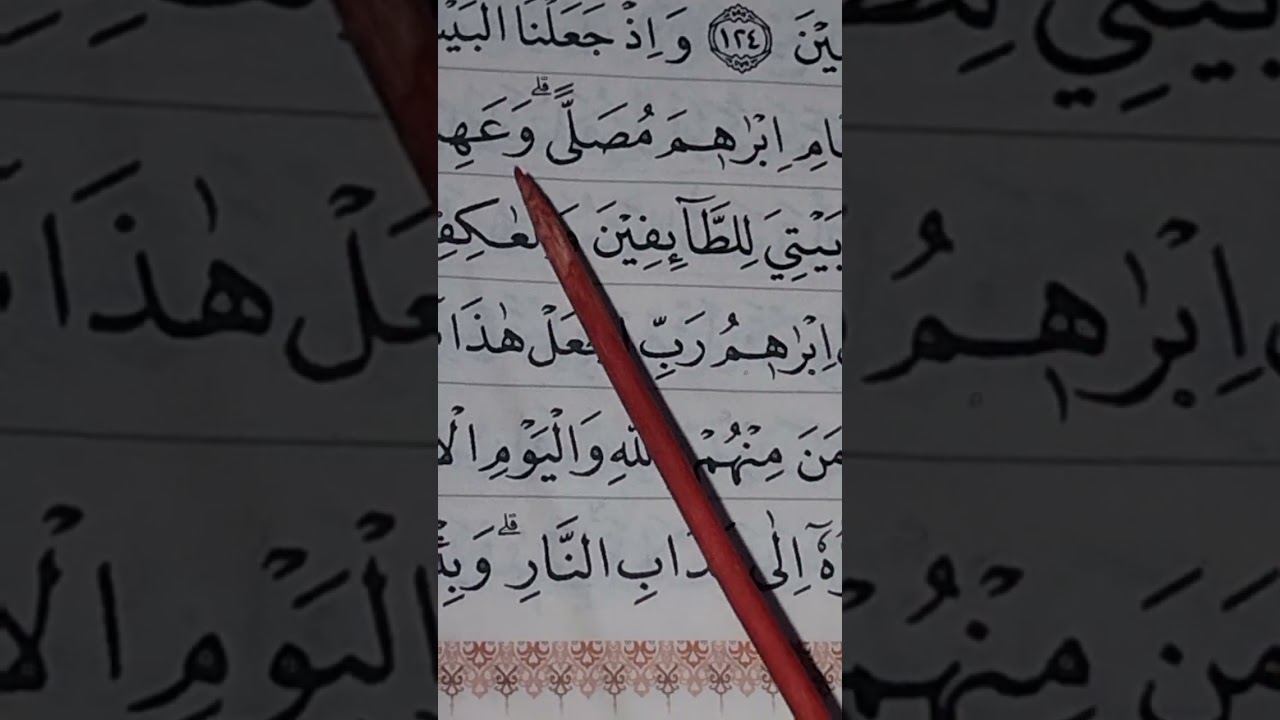 ـيْنَ ١٢٤ وَاِذْ جَعَلْنَا الْبَيْـ
ـامِ اِبْرٰهٖمَ مُصَلًّىۗ وَعَهِـ
بَيْتِيَ لِلطَّآىِٕفِيْنَ وَالْعٰكِفِـ
اِبْرٰهٖمُ رَبِّ اجْعَلْ هٰذَا
مَنَ مِنْهُمْ بِاللّٰهِ وَالْيَوْمِ الْاٰ
ـرُّهٗٓ اِلٰى عَذَابِ النَّارِۗ وَبِئْـ